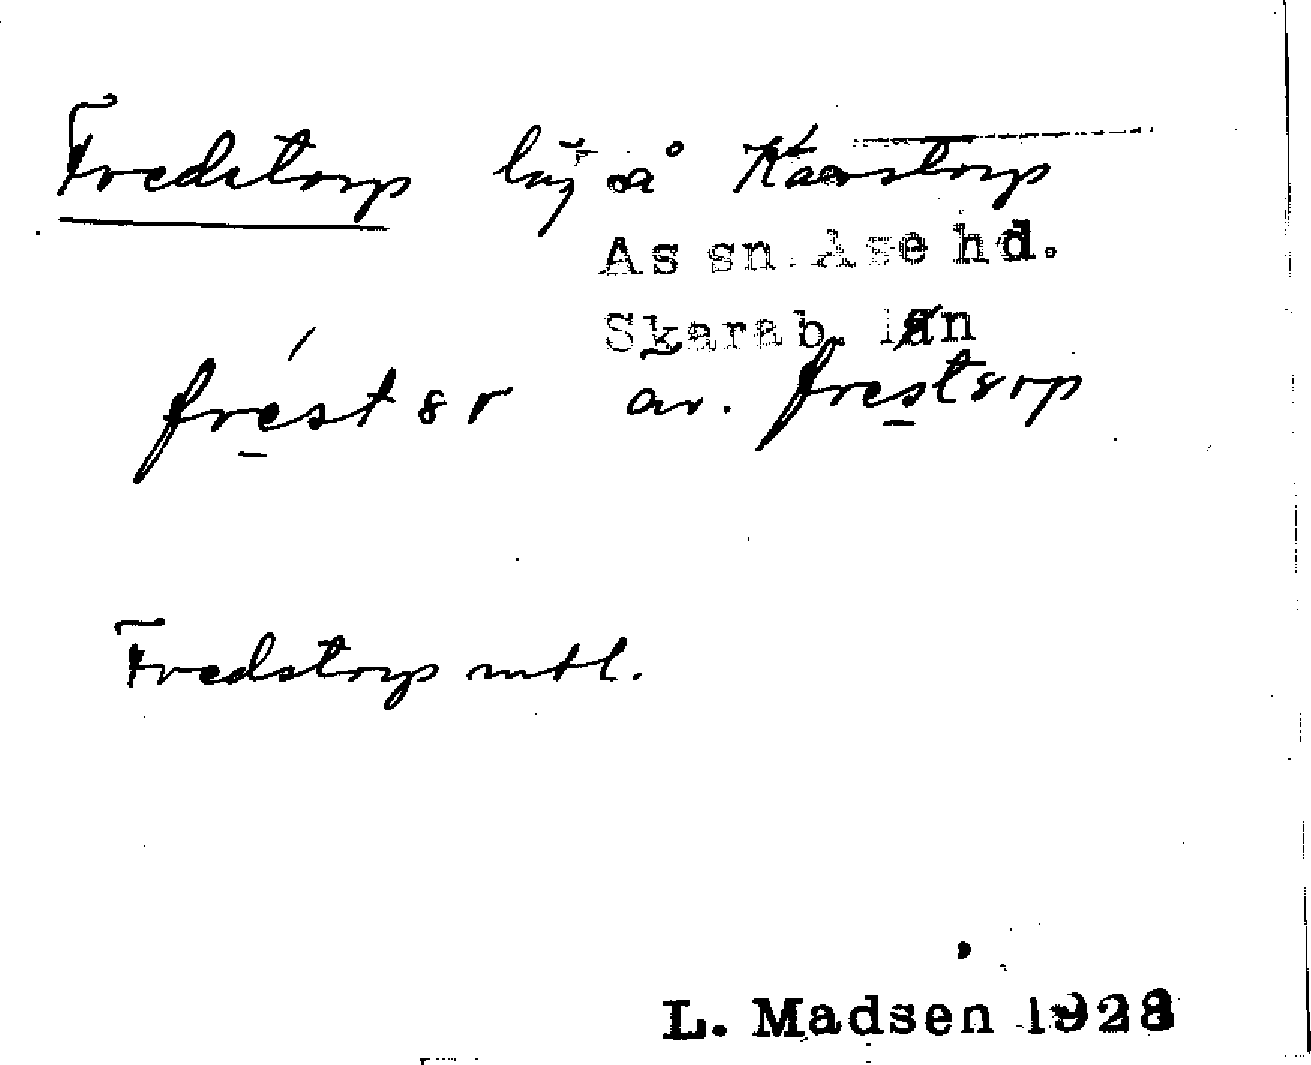 Fredstorp lhj å Kaxstorp
As sn. Åse hd.
Skarab. län
fréstər av. frestərp
Fredstorp mtl.
L. Madsen 1928